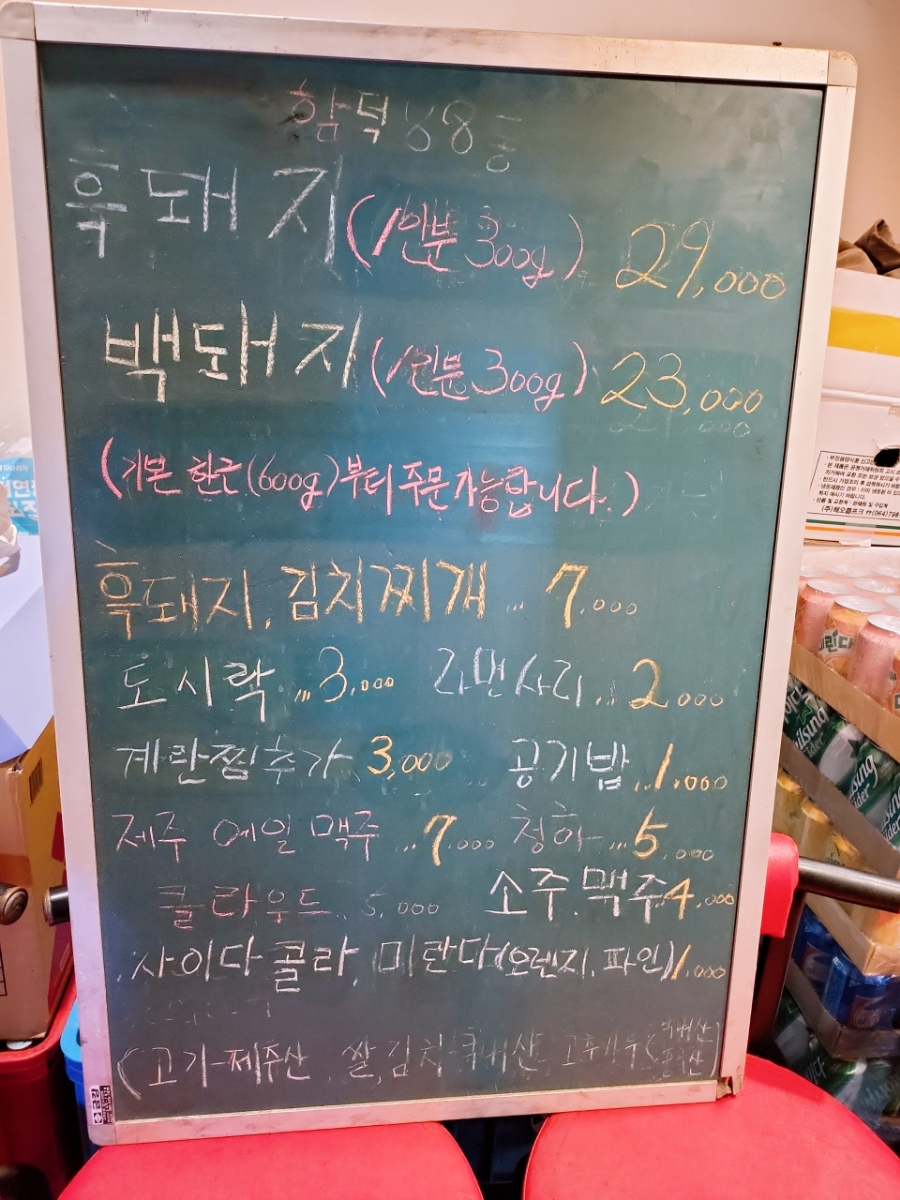 함덕 88
흑돼지 (1인분 300g) 29,000
백돼지 (1인분 300g) 23,000
(기본 한근(600g)부터 주문가능합니다.)
흑돼지, 김치찌개 ... 7,000
도시락 ... 3,000 라면사리 ... 2,000
계란찜추가 3,000 공기밥 ... 1,000
제주 에일 맥주 ... 7,000 청하 ... 5,000
클라우드 .. 5,000 소주.맥주 4,000
사이다 콜라, 미란다(오렌지, 파인) 1,000
(고기-제주산, 쌀,김치-국내산, 고추가루(
미린다